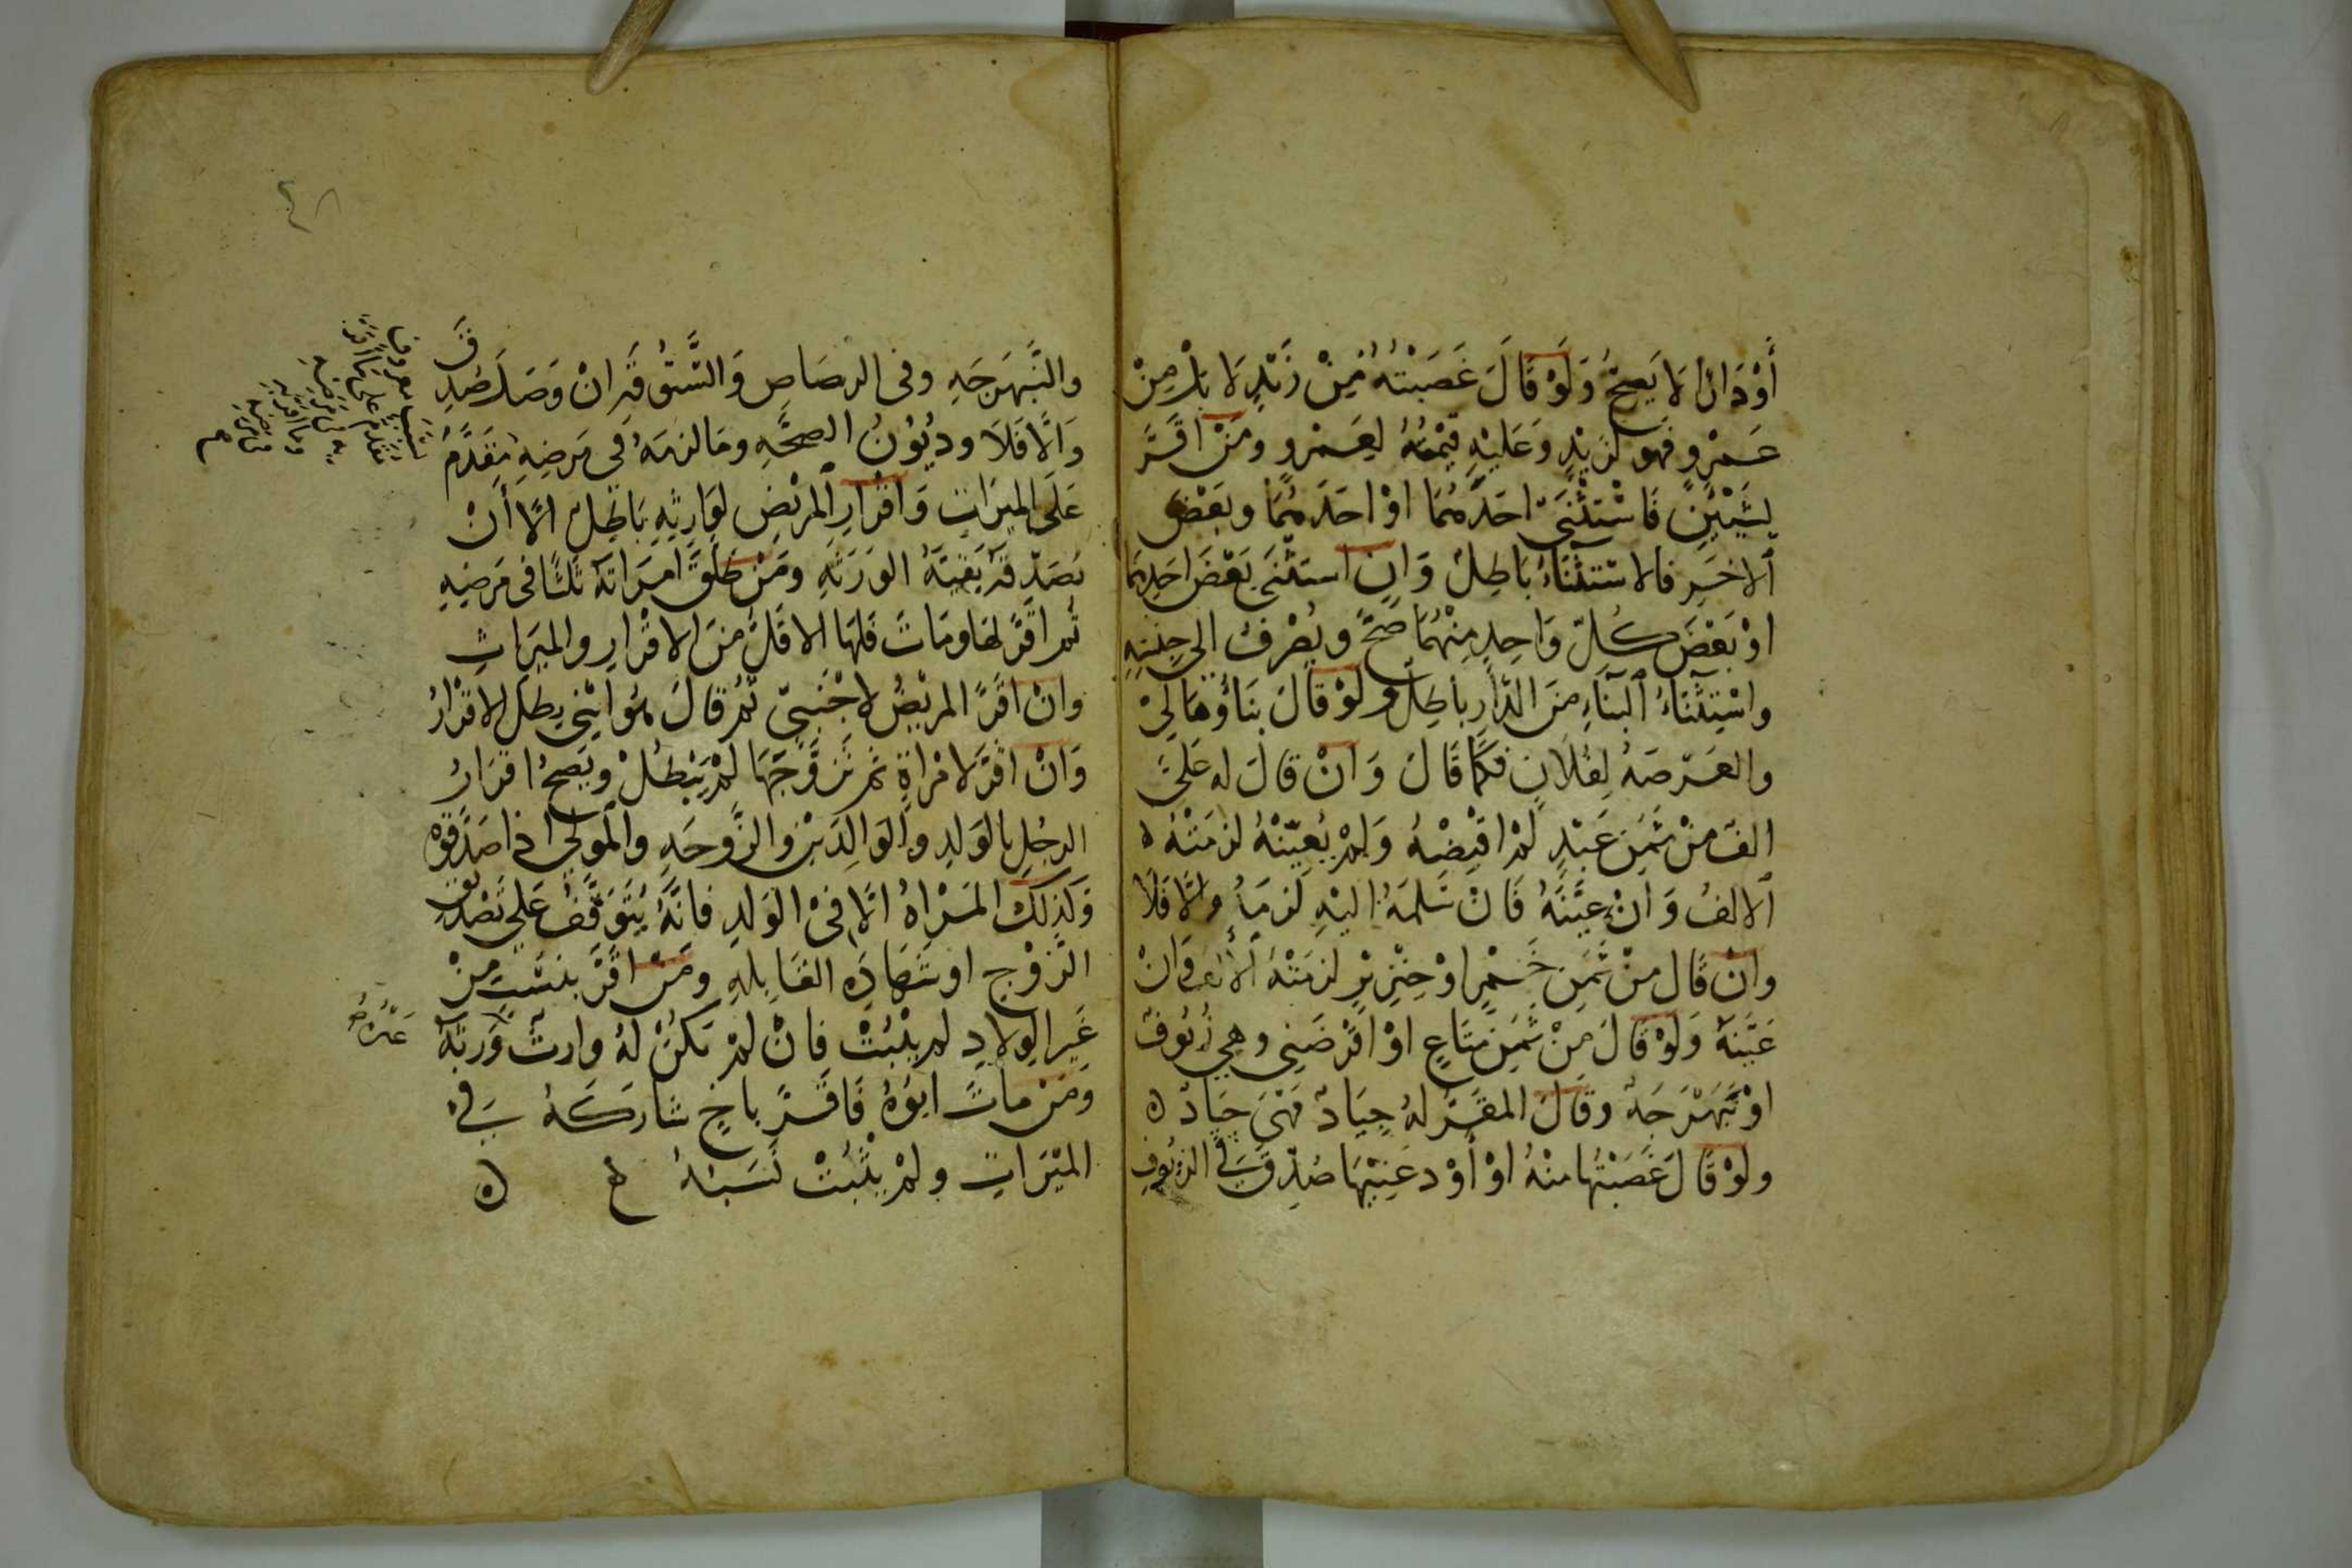 أَوْ دَانَاَ لَا يَصِحُّ وَلَوْ قَالَ غَصَبْتُهُ مِنْ زَيْدٍ لَا بَلْ مِنْ
عَمْرٍو فَهو لزَيْدٍ وَعَليْهِ قيْمتُهُ لِعَمْرٍو ومَنْ اقَرَّ
بِشَيْئيْنِ فَاسْتَثْنَىٰ احَدَهُمَا اوْ احَدَهُمَا وبَعْضَ
الاخَرِ فالاسْتثْنَاءُ بَاطِلٌ وَانِ اسْتَثْنَى بَعْضَ احَدِهِمَا
اوْ بَعْضَ كُلِّ وَاحِدٍ مِنْهُمَا صَحَّ ويُصْرفُ الى جِنْسِهِ
واسْتِثْنَاءُ البِنَاءِ مِنَ الدَّارِ باطِلٌ ولوْ قَالَ بِنَاؤُهَا لِيْ
والعَرْصَهُ لِفُلَانٍ فَكَمَا قَالَ وَانْ قالَ له عَلَيَّ
الفٌ مِنْ ثَمَنِ عَبْدٍ لَمْ اقْبِضْهُ وَلَمْ يُعَيّنْهُ لزمَتْهُ ه
الالفُ وَانْ عيَّنَهُ فَانْ سَلمَهُ اليْهِ لَزمَهُ والَّا فَلَا
وانْ قَال مِنْ ثَمَنِ خَمْرٍ اوْ خِنْزِيْرٍ لزمَتْهُ الالف وَانْ
عَيَّنَهُ وَلَوْ قَالَ مِنْ ثَمَنِ مَتَاعٍ اوْ اقْرَضَنِي وهي زُيُوفٌ
اوْ نَبَهْرَجَهٌ وقَالَ المقَرُّ لهُ جِيَادٌ فَهْيَ جِيَادٌ ه
ولَوْ قَالَ غَصَبْتُها منْهُ اوْ أَوْدعَنِيْهَا صُدِّقَ فِي الزيُوفِ
والنَّبَهرَجَهِ وفى الرصَاصِ وَالسَّتُّوْقَهِ انْ وَصَلَ صُدِّقَ
وَالَّا فَلَا وديُوْنُ الصحَّهِ ومَا لزمَهُ فِي مَرضِهِ مُقَدَّمٌ
عَلَى المِيرَاثِ وَاقْرَارُ المَرِيْضِ لوَارِثِهِ بَاطِلٌ الَّا أَنْ
يُصَدِّقَهُ بَقيَّةُ الوَرَثَهِ ومَنْ طَلَّقَ امرَاتَهُ ثلثًا فى مَرضِهِ
ثُم اقَرَّ لهَا ومَاتَ فَلَهَا الاقَلُّ مِنَ الاقْرَارِ والمِيرَاثِ
وانْ اقَرَّ المَرِيْضُ لاجْنَبيّ ثُمَّ قَالَ هُوَ ابْنِي بطلَ الاقْرَارُ
وَانْ اقَرَّ لامْرَاةٍ ثم تَزوَّجَهَا لَمْ يَبْطُلْ ويَصِحُّ اقْرَارُ
الرجُلِ بالوَلدِ والوَالِدَيْنِ والزَّوجَهِ والمَوْلَى اذا صَدَّقوْهُ
وَكَذلِكَ المَرْاةُ الَّا فى الوَلدِ فانَّهُ يَتَوَقَّفُ عَلى تَصْدِيْقِ
الزَّوْجِ اوشَهَادَهِ القَابِلهِ ومَنْ اقَرَّ بنسَبٍ مِنْ
غَيرِ الوِلَادِ لم يثْبُتْ فانْ لَمْ يَكُنْ لهُ وارثٌ وَرِثَهُ
وَمَنْ مَاتَ ابُوْهُ فَاقَرَّ باخٍ شارَكَهُ فِي
المِيْرَاثِ ولَمْ يَثْبُتْ نَسَبُهُ ه